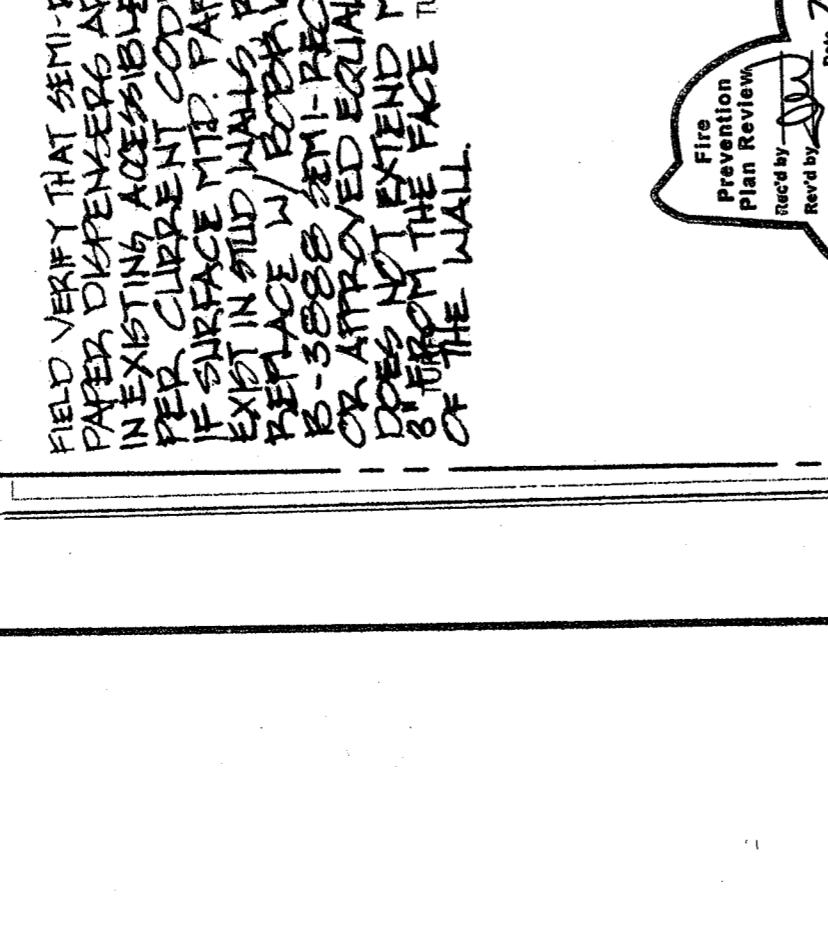 FIELD VERIFY THAT SEMI-
PAPER DISPENSERS
IN EXISTING ACCESSIBLE
PER CURRENT COD
IF SURFACE MTD. PAP
EXIST IN STUD WALLS
REPLACE W/ BOBR
B-3888 SEMI-REC
OR APPROVED EQUAL
DOES NOT EXTEND M
3" FROM THE FACE
OF THE WALL.
Fire
Prevention
Plan Review
Rec'd by
Rev'd by